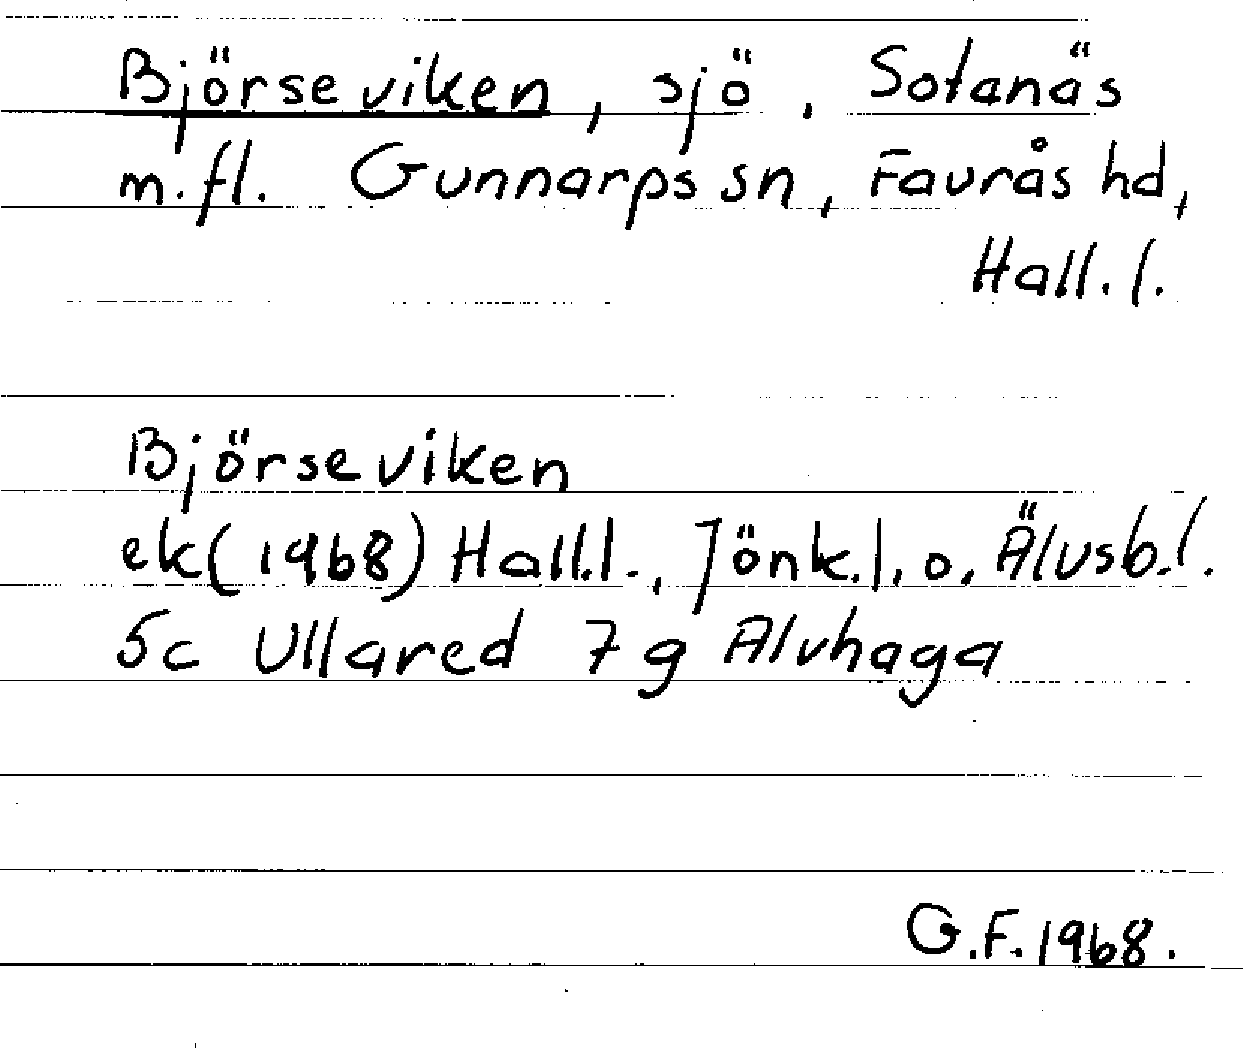 Björseviken, sjö, Sotanäs
m.fl. Gunnarps sn, Faurås hd,
Hall.l.
Björseviken
ek(1968) Hall.l., Jönk.l. o. Älvsb.l.
5c Ullared 7g Alvhaga
G.F. 1968.